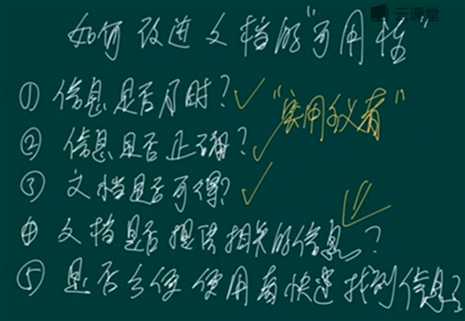 云课堂
如何改进文档的"可用性"
① 信息是否及时? ✓
"实用主义者"
② 信息是否正确? ✓
③ 文档是否可得? ✓
④ 文档是否提供相关的信息?
⑤ 是否方便使用者快速找到信息?